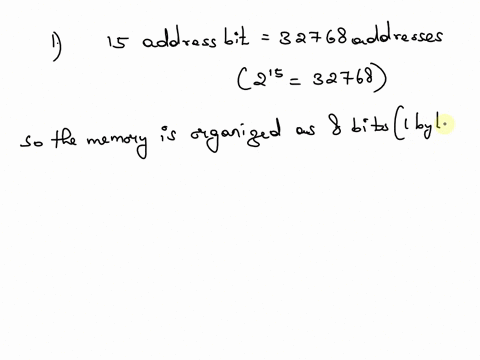 1) 15 address bit = 32768 addresses
(2¹⁵ = 32768)
so the memory is organized as 8 bits (1 byt